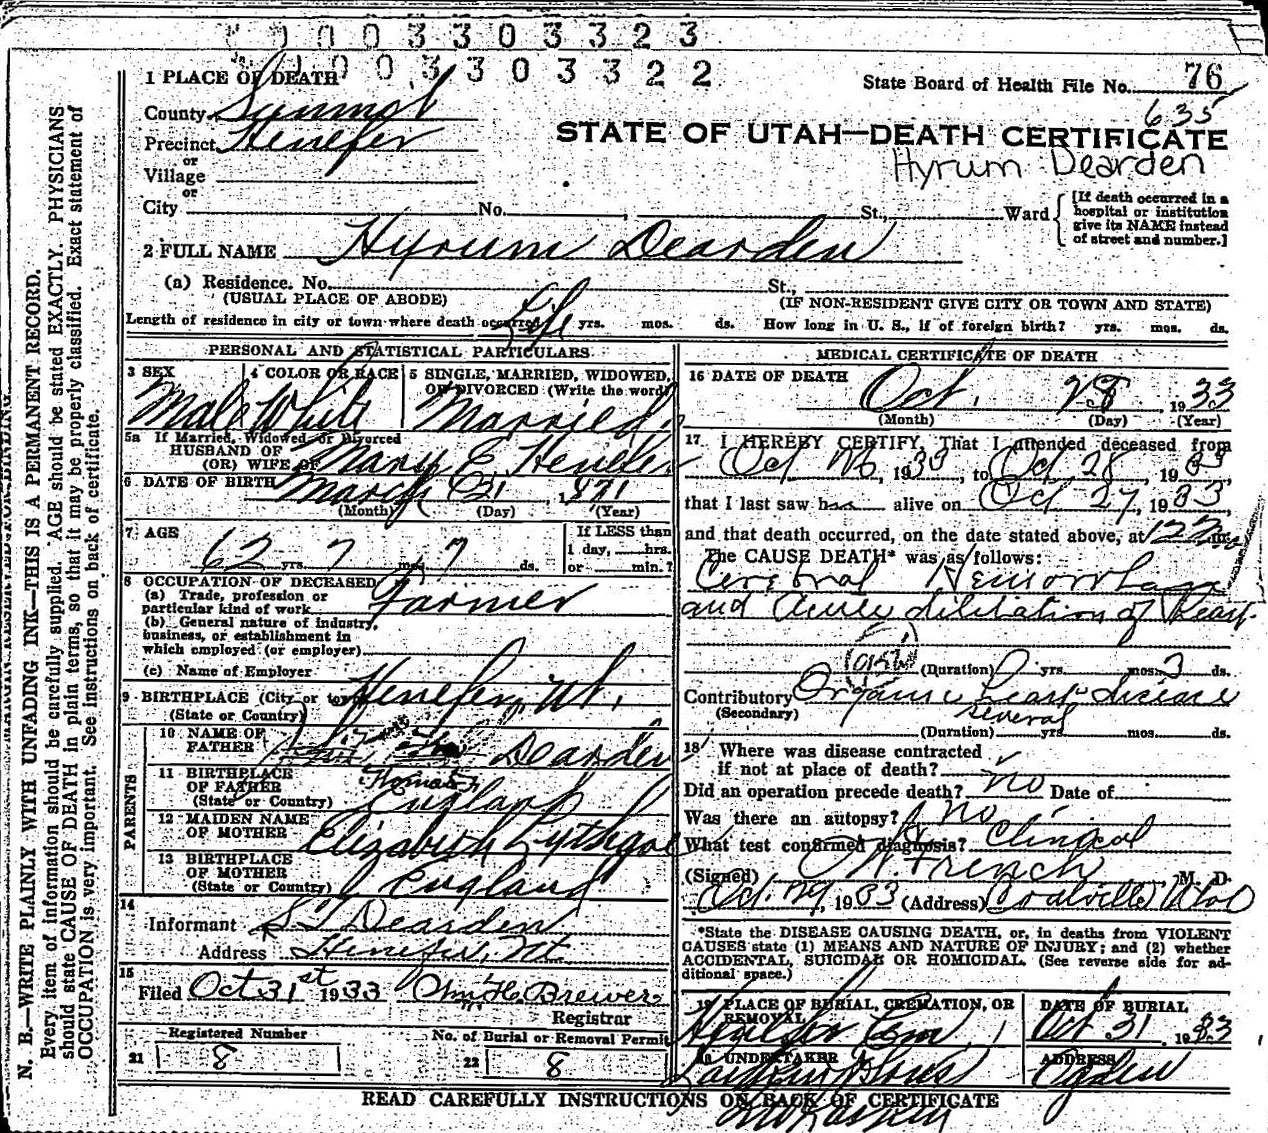 0003303323
0003303322
1 PLACE OF DEATH
State Board of Health File No. 76
635
County Summit
STATE OF UTAH—DEATH CERTIFICATE
Precinct Henefer
Hyrum Dearden
or
Village
or
City No. , St., Ward
[If death occurred in a
hospital or institution
give its NAME instead
of street and number.]
2 FULL NAME Hyrum Dearden
(a) Residence. No. St.,
(USUAL PLACE OF ABODE) (IF NON-RESIDENT GIVE CITY OR TOWN AND STATE)
Length of residence in city or town where death occurred Life yrs. mos. ds. How long in U. S., if of foreign birth? yrs. mos. ds.
PERSONAL AND STATISTICAL PARTICULARS
3 SEX 4 COLOR OR RACE 5 SINGLE, MARRIED, WIDOWED,
OR DIVORCED (Write the word)
Male White Married
5a If Married, Widowed, or Divorced
HUSBAND OF
(OR) WIFE OF Mary E. Henefer
6 DATE OF BIRTH March 21, 1871
(Month) (Day) (Year)
7 AGE If LESS than
62 yrs. 7 mos. 7 ds. 1 day, hrs.
or min.?
8 OCCUPATION OF DECEASED
(a) Trade, profession or
particular kind of work Farmer
(b) General nature of industry,
business, or establishment in
which employed (or employer)
(c) Name of Employer
9 BIRTHPLACE (City or town) Henefer, Ut.
(State or Country)
PARENTS
10 NAME OF
FATHER Dearden
Thomas
11 BIRTHPLACE
OF FATHER
(State or Country) England
12 MAIDEN NAME
OF MOTHER Elizabeth Lythgoe
13 BIRTHPLACE
OF MOTHER
(State or Country) England
14
Informant S T Dearden
Address Henefer, Ut.
15
Filed Oct 31st 1933 Wm H. Brewer
Registrar
Registered Number No. of Burial or Removal Permit
21 8 22 8
MEDICAL CERTIFICATE OF DEATH
16 DATE OF DEATH
Oct. 28, 1933
(Month) (Day) (Year)
17 I HEREBY CERTIFY, That I attended deceased from
Oct 26, 1933, to Oct 28, 1933,
that I last saw h alive on Oct 27, 1933,
and that death occurred, on the date stated above, at m.
The CAUSE DEATH* was as follows:
Cerebral Hemorrhage
and Acute dilitation of Heart
(Duration) 0 yrs. mos. 3 ds.
Contributory Organic heart disease
(Secondary) several
(Duration) yrs. mos. ds.
18 Where was disease contracted
if not at place of death?
Did an operation precede death? no Date of
Was there an autopsy? no
What test confirmed diagnosis? Clinical
(Signed) French M. D.
Oct. 29, 1933 (Address) Coalville Utah
*State the DISEASE CAUSING DEATH, or, in deaths from VIOLENT
CAUSES state (1) MEANS AND NATURE OF INJURY; and (2) whether
ACCIDENTAL, SUICIDAL OR HOMICIDAL. (See reverse side for ad-
ditional space.)
19 PLACE OF BURIAL, CREMATION, OR
REMOVAL DATE OF BURIAL
Henefer Cem. Oct 31, 1933
20 UNDERTAKER ADDRESS
Larkin & Sons Ogden
READ CAREFULLY INSTRUCTIONS ON BACK OF CERTIFICATE
MARGIN RESERVED FOR BINDING.
N. B.—WRITE PLAINLY WITH UNFADING INK—THIS IS A PERMANENT RECORD.
Every item of information should be carefully supplied. AGE should be stated EXACTLY. PHYSICIANS
should state CAUSE OF DEATH in plain terms, so that it may be properly classified. Exact statement of
OCCUPATION is very important. See instructions on back of certificate.